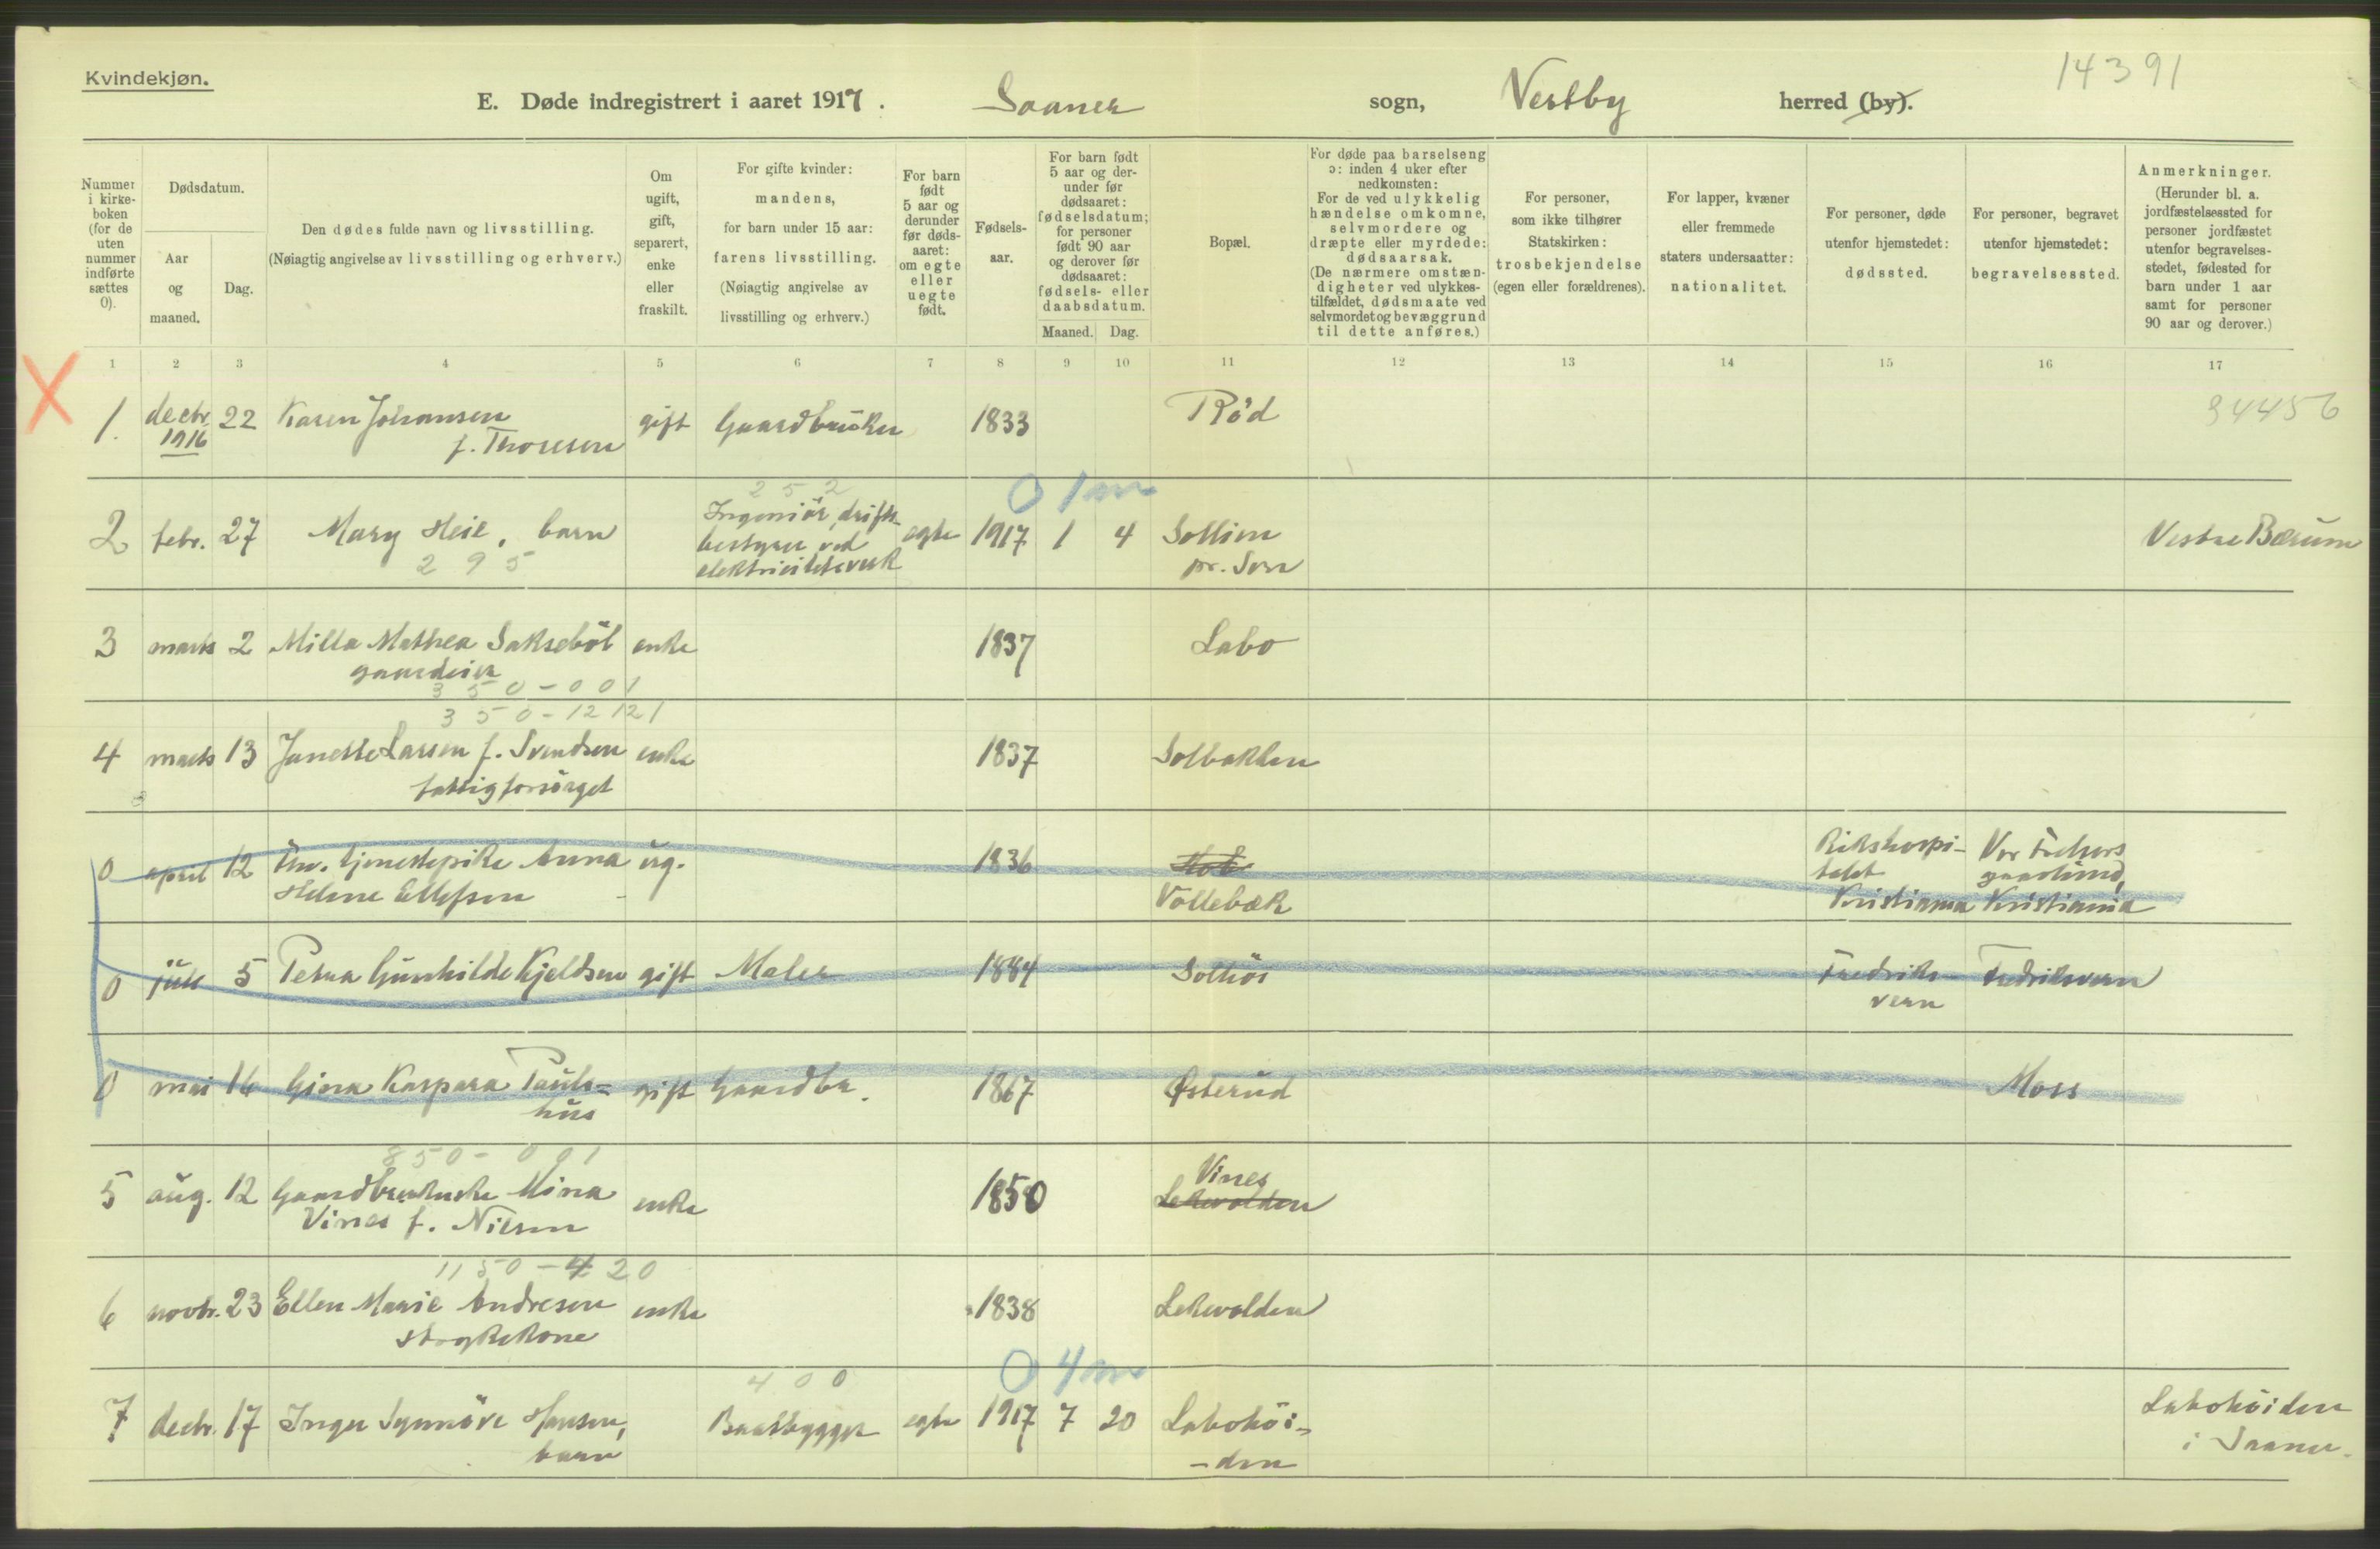 Kvindekjøn.
14391
E. Døde indregistrert i aaret 1917. Saaner sogn, Vestby herred (by).
Nummer i kirkeboken (for de uten nummer indførte sættes 0).
Dødsdatum.
Aar og maaned.
Dag.
Den dødes fulde navn og livsstilling.
(Nøiagtig angivelse av livsstilling og erhverv.)
Om ugift, gift, separert, enke eller fraskilt.
For gifte kvinder: mandens, for barn under 15 aar: farens livsstilling. (Nøiagtig angivelse av livsstilling og erhverv.)
For barn født 5 aar og derunder før dødsaaret: om egte eller uegte født.
Fødselsaar.
For barn født 5 aar og derunder før dødsaaret: fødselsdatum; for personer født 90 aar og derover før dødsaaret: fødsels- eller daabsdatum.
Maaned. Dag.
Bopæl.
For døde paa barselseng ɔ: inden 4 uker efter nedkomsten:
For de ved ulykkelig hændelse omkomne, selvmordere og dræpte eller myrdede: dødsaarsak.
(De nærmere omstændigheter ved ulykkestilfældet, dødsmaate ved selvmordet og bevæggrund til dette anføres.)
For personer, som ikke tilhører Statskirken: trosbekjendelse (egen eller forældrenes).
For lapper, kvæner eller fremmede staters undersaatter: nationalitet.
For personer, døde utenfor hjemstedet: dødssted.
For personer, begravet utenfor hjemstedet: begravelsessted.
Anmerkninger.
(Herunder bl. a. jordfæstelsessted for personer jordfæstet utenfor begravelsesstedet, fødested for barn under 1 aar samt for personer 90 aar og derover.)
1 2 3 4 5 6 7 8 9 10 11 12 13 14 15 16 17
X
1. decbr. 1916 22 Karen Johansen f. Thoresen gift Gaardbruker 1833 Rød 34456
252 0 1 m
2 febr. 27 Mary Heie, barn Ingeniör, driftsbestyrer ved elektricitetsverk egte 1917 1 4 Sollien pr. Son Vestre Bærum
295
3 marts 2 Milla Mathea Sakseböl gaardeier enke 1837 Labo
350-001
350-12121
4 marts 13 Janette Larsen f. Svendsen fattigforsörget enke 1837 Solbakken
0 april 12 Fhv. tjenestepike Anna Helene Ellefsen ug. 1836 Vollebæk Rikshospitalet Kristiania Vor Frelsers gravlund, Kristiania
0 juli 5 Petra Gunhilde Kjeldsen gift Maler 1884 Solhöi Fredriksvern Fredriksvern
0 mai 14 Gina Kaspara Paulshus gift Gaardbr. 1867 Østerud Moss
850-001
5 aug. 12 Gaardbrukerske Mina Vines f. Nilsen enke 1850 Vines Lekevolden
1150-420
6 novbr. 23 Ellen Marie Andresen strykekone enke 1838 Lekevolden
400 0 4 m
7 decbr. 17 Inger Synnöve Hansen, barn Baatbygger egte 1917 7 20 Labohöiden Labohöiden i Saaner.